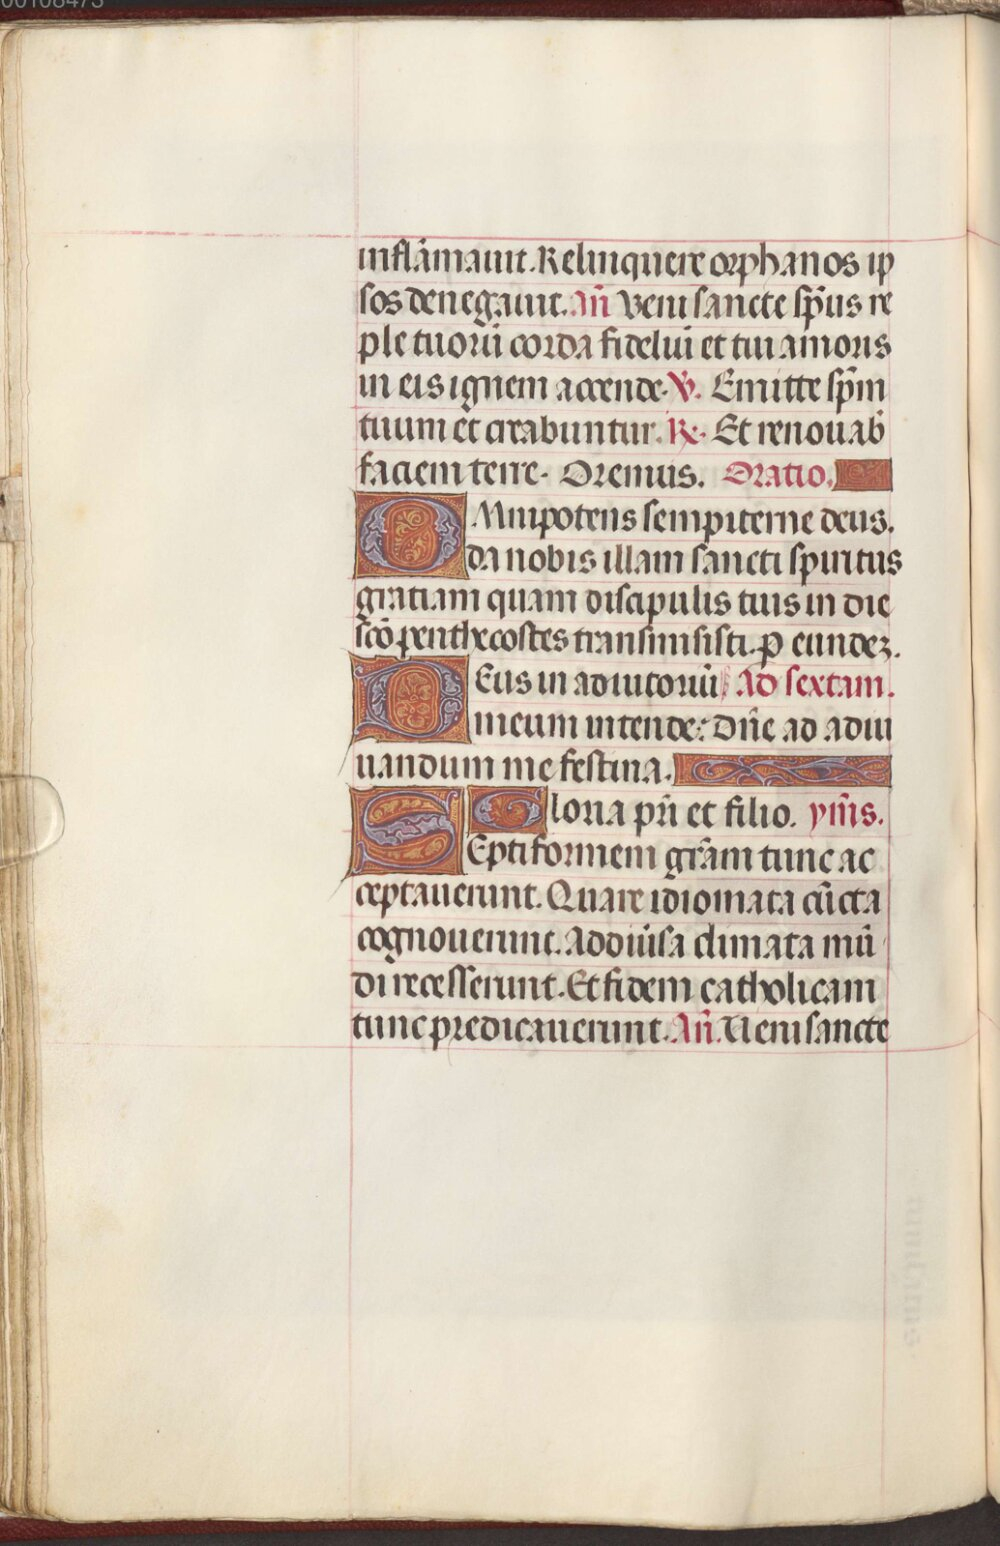 00108473
inflãmauit. Relinquere orphanos ip
sos denegauit. Añ Veni sancte sp̃us re
ple tuorũ corda fideliũ et tui amoris
in eis ignem accende. ℣. Emitte sp̃m
tuum et creabuntur. ℟. Et renouab̃
faciem terre. Oremus. Oratio.
OMnipotens sempiterne deus.
da nobis illam sancti spiritus
gratiam quam discipulis tuis in die
scõ penthecostes transmisisti. p̱ eundez.
DEus in adiutoriũ Ad sextam.
meum intende: Dñe ad adiu
uandum me festina.
Gloria pr̃i et filio. ymñs.
SEptiformem gr̃am tunc ac
ceptauerunt. Quare idiomata cũcta
cognouerunt. Ad diũsa climata mũ
di recesserunt. Et fidem catholicam
tunc predicauerunt. Añ. Ueni sancte